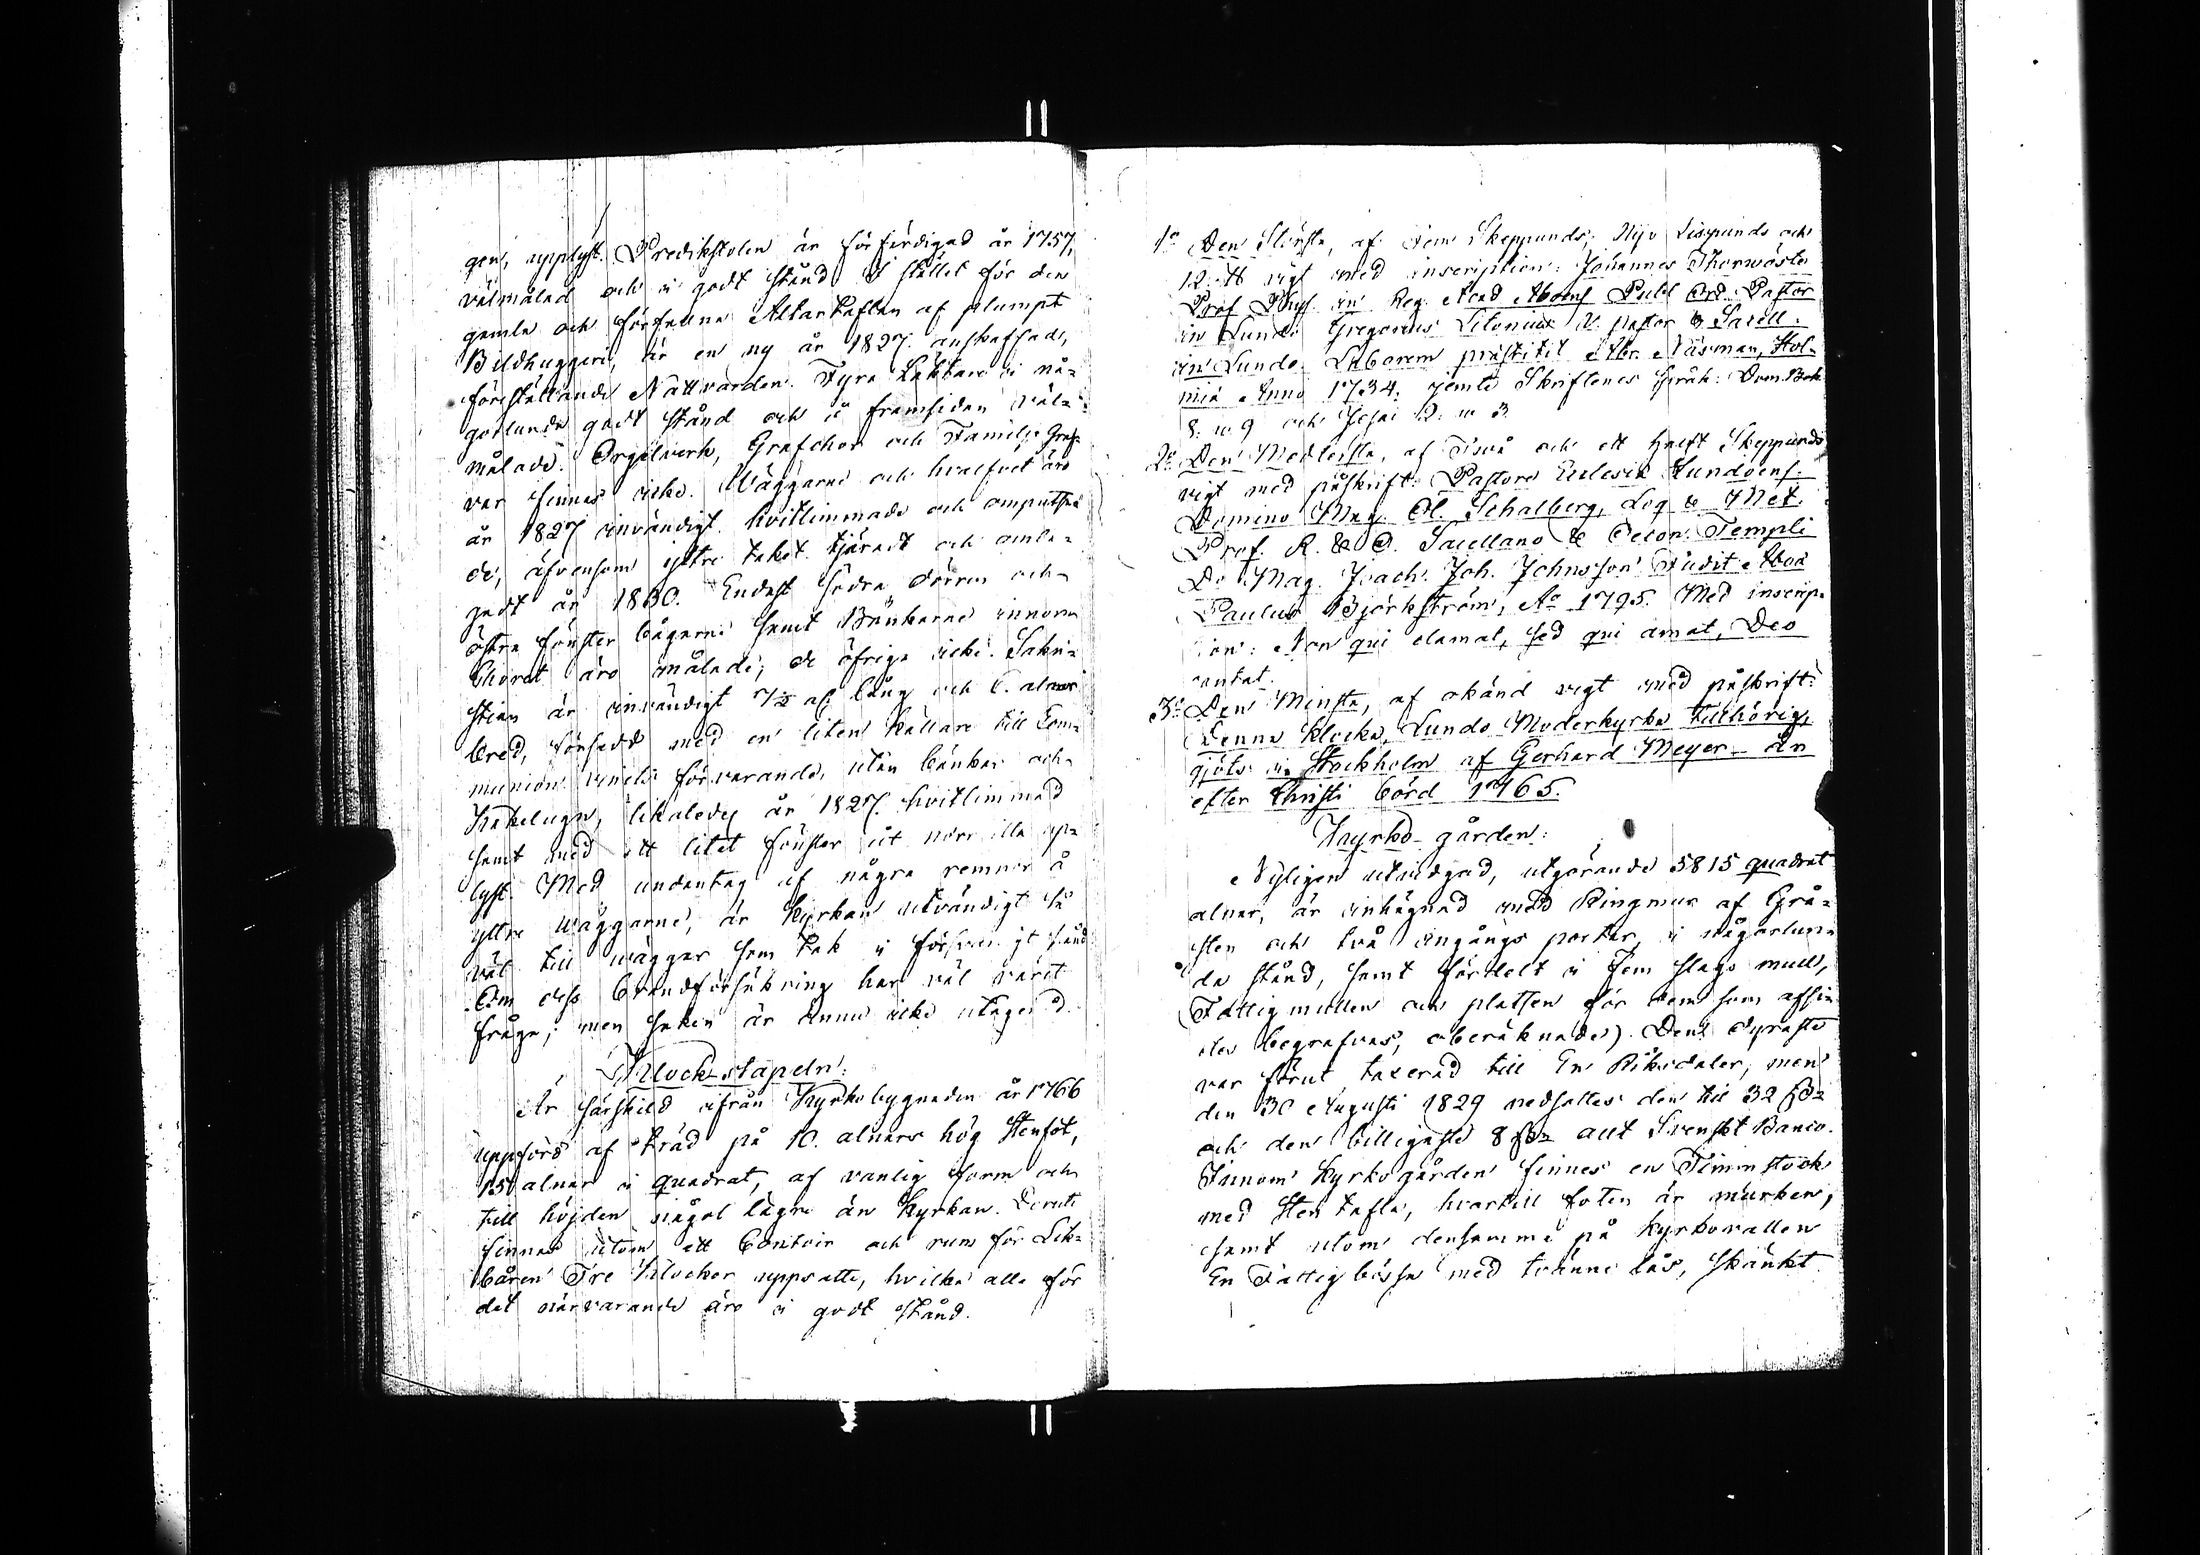 gen, upplyst. Predikstolen är förfärdigad år 1757,
välmålad och i godt stånd. I stället för den
gamla och förfallna Altartaflan af plumpt
Bildhuggeri, är en ny år 1827 anskaffad,
föreställande Nattvarden. Fyra Läktare i nå-
gorlunda godt stånd och å framsidan väl-
målade. Orgelverk, Grafchor och Familje Graf-
var finnas icke. Wäggarne och hvalfvet äro
år 1827 invändigt hvitlimmade och omputsa-
de, äfvensom yttre taket tjäradt och omla-
gadt år 1830. Endast södra dörren och
östra fönster bågarne samt Bänkarne innom
Choret äro målade; de öfriga icke. Sakri-
stian är invändigt 7½ al: lång och 6. alnar
bred, försedd med en liten källare till Com-
munion vinets förvarande, utan bänkar och
Kakelugn, likaledes år 1827. hvitlimmad
samt med ett litet fönster åt norr illa up-
lyst. Med undantag af några remnor å
yttre wäggarne, är Kyrkan utvändigt så
väl till wäggar som tak i försvarligt stånd.
Om dess brandförsäkring har väl varit
fråga; men saken är ännu icke afgjord.
Klock-stapeln:
Är särskild ifrån Kyrkobygnaden år 1766
uppförd af träd på 10. alnars hög Stenfot,
15 alnar i quadrat, af vanlig form och
till höjden något lägre än Kyrkan. Deruti
finnas utom ett Contoir och rum för Lik-
båren Tre Klockor uppsatte, hvilka alla för
det närvarande äro i godt stånd.
1o Den Största, af Fem Skeppunds, Nijo Lispunds och
12 ℔ vigt med inscription: Johannes Thorwöste
Prof. Phys. in Reg. Acad. Aboens. Publ. Ord. Pastor
in Lundo Gregorius Litonius V. pastor & Sacell.
in Lundo. Laborem præstitit Abr. Näsman, Hol-
mia Anno 1734. jemte Skriftenes språk: Dom. Bok.
8. v. 9 och Jesai 12. v. 3.
2o Den Medlersta, af Två och ett halft Skeppunds
vigt med påskrift: Pastore Eclesiæ Lundoens.
Domino Mag. Ol. Schalberg, Log. & Met.
Prof. R. & O. Sacellano & Oecon. Templi
Do Mag. Joach. Joh. Johnsson Fudit Aboæ
Paulus Björkström, Ao 1795. Med inscrip-
tion: Non qui clamat, sed qui amat, Deo
cantat.
3o Den Minsta, af okänd vigt med påskrift:
Denna Klocka, Lundo Moderkyrka tillhörig,
gjöts i Stockholm af Gerhard Meyer år
efter Christi börd 1765.
Kyrko-gården:
Nyligen utvidgad, utgörande 5815 quadrat
alnar, är inhägnad med Ringmur af Grå-
sten och två ingångs portar, i någorlun-
da stånd, samt fördelt i Fem slags mull,
(Fattigmullen och platsen för dem som afsi-
des begrafvas, oberäknade). Den dyraste
var förut taxerad till En Riksdaler, men
den 30 Augusti 1829 nedsattes den till 32 ß
och den billigaste 8 ß allt Svenskt Banco.
Innom Kyrkogården finnes en Timmstock
med Sten tafla, hvartill foten är murken,
samt utom densamma på Kyrkovallen
En Fattigbössa med tvänne lås, skänkt